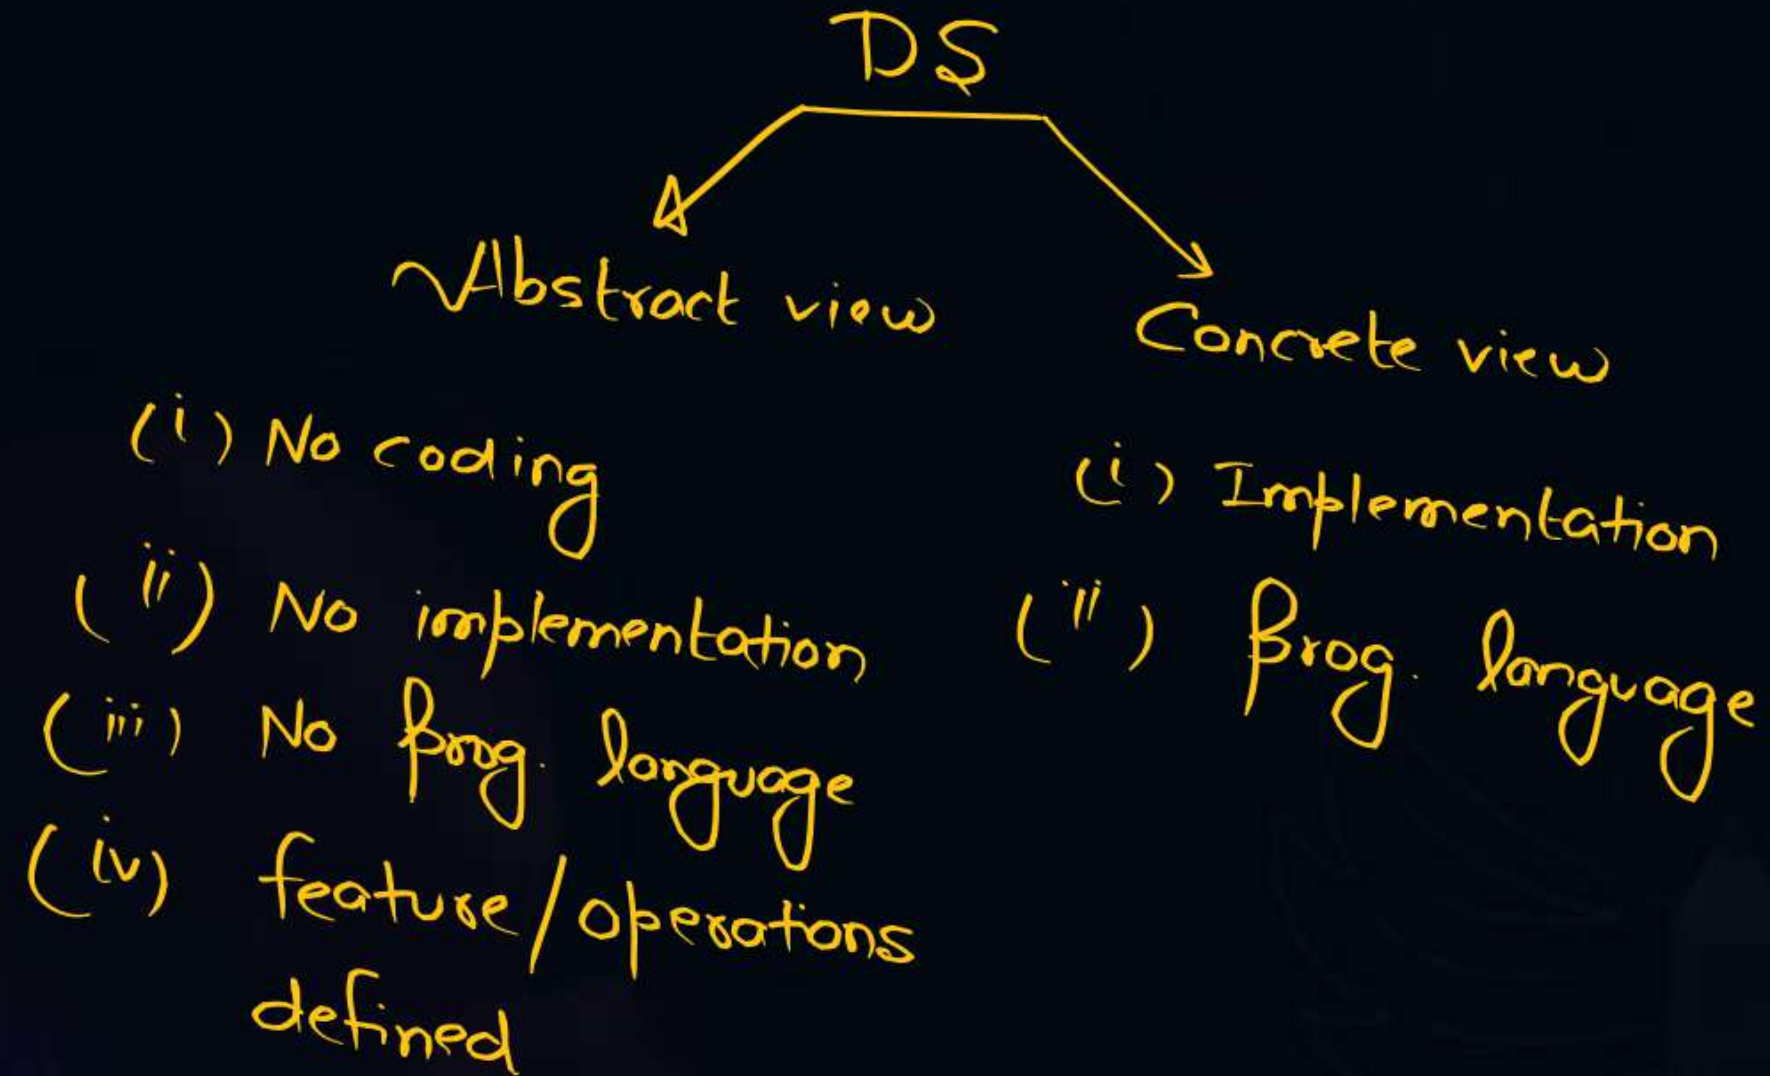 DS
Abstract view
Concrete view
(i) No coding
(ii) No implementation
(iii) No prog. language
(iv) feature/operations
defined
(i) Implementation
(ii) Prog. language